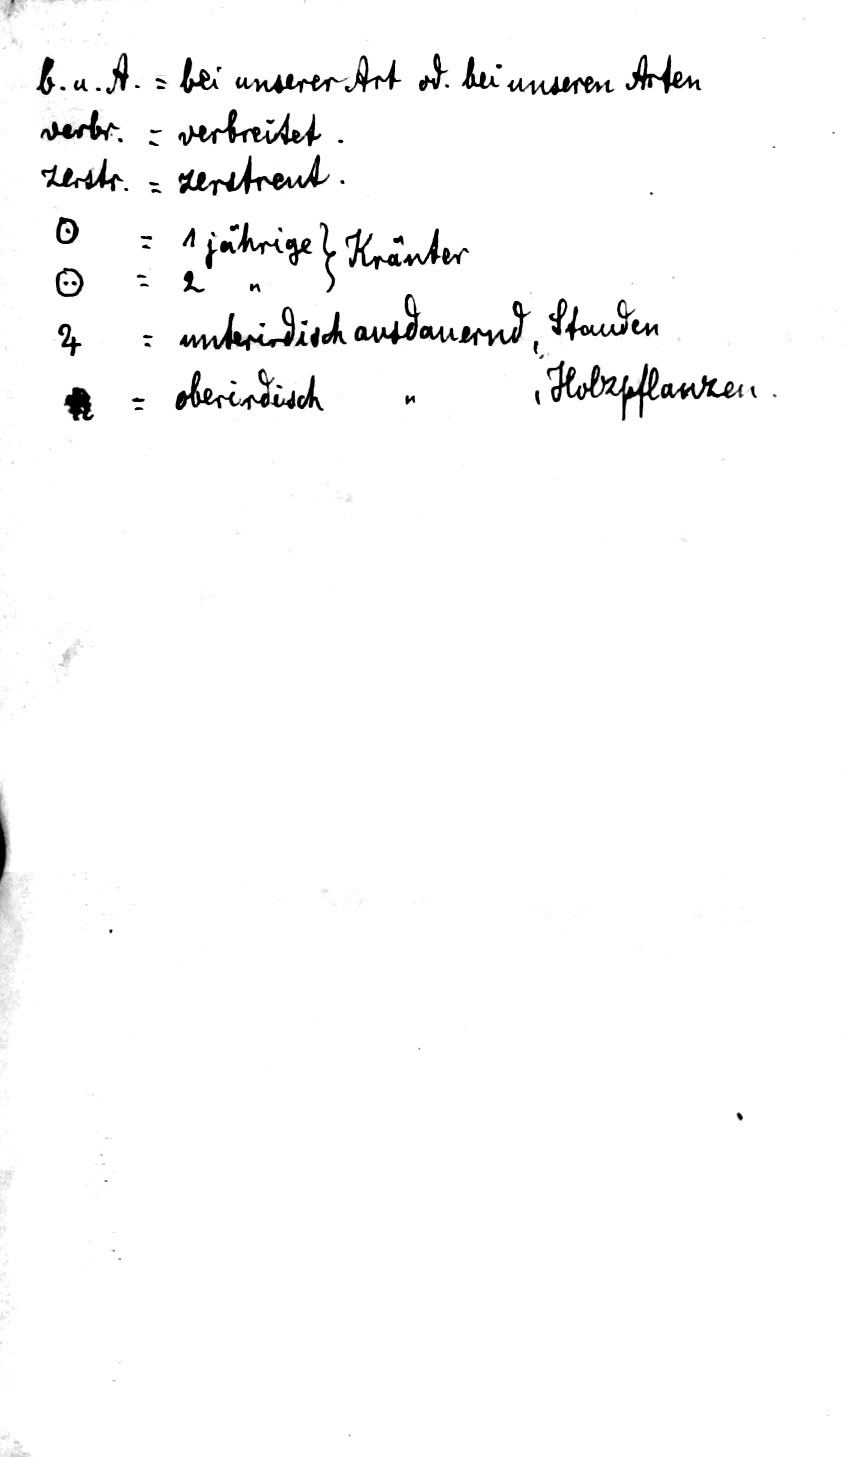 b. u. A. = bei unserer Art od. bei unseren Arten
verbr. = verbreitet.
zerstr. = zerstreut.
⊙ = 1 jährige } Kräuter
= 2 "
♃ = unterirdisch ausdauernd, Stauden
= oberirdisch " , Holzpflanzen.